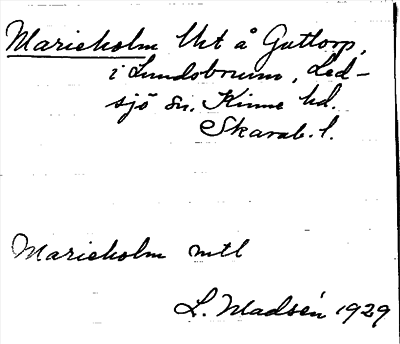 Marieholm lht å Guttorp,
i Lundsbrunn, Led-
sjö sn. Kinne hd.
Skarab. l.
Marieholm mtl
L. Madsén 1929